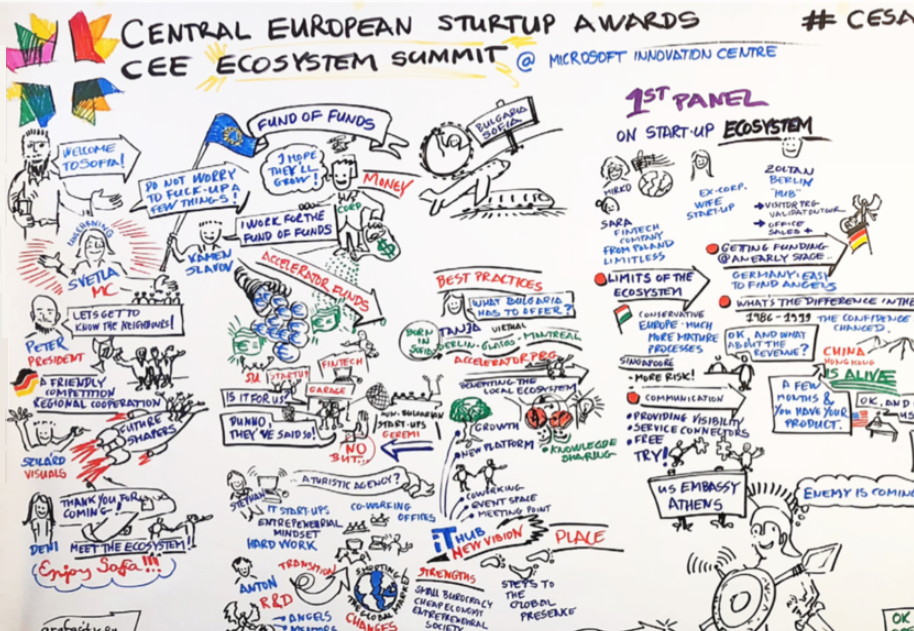 CENTRAL EUROPEAN STURTUP AWARDS
# CESA
CEE ECOSYSTEM SUMMIT @ MICROSOFT INNOVATION CENTRE
WELCOME
TO SOFIA!
SVETLA
MC
LETS GET TO
KNOW THE NEIGHBOURS!
PETER
PRESIDENT
A FRIENDLY
COMPETITION
REGIONAL COOPERATION
FUTURE
SHAPERS
SZILÁRD
VISUALS
THANK YOU FOR
COMING!
DENI
MEET THE ECOSYSTEM!
Enjoy Sofia!!!
FUND OF FUNDS
DO NOT WORRY
TO FUCK-UP A
FEW THINGS!
I HOPE
THEY'LL
GROW!
MONEY
CORP
I WORK FOR THE
FUND OF FUNDS
KAMEN
SLAVOV
ACCELERATOR FUNDS
STARTUP
FINTECH
GARAGE
IS IT FOR US?
DUNNO,
THEY'VE SAID SO!
START-UPS
NO
BUT...
A TURISTIC AGENCY?
IT START-UPS
ENTREPENEURIAL
MINDSET
HARD WORK
CO-WORKING
OFFICES
ANTON
R&D
TRANSITION
ANGELS
CHANGES
BULGARIA
SOFIA
BEST PRACTICES
WHAT BULGARIA
HAS TO OFFER?
TANJA
VIRTUAL
BORN
IN
SOFIA
BERLIN-GLASGO-MONTREAL
ACCELERATOR PRG
BENEFITING THE
LOCAL ECOSYSTEM
GROWTH
NEW PLATFORM
KNOWLEDGE
SHARING
COWORKING
EVENT SPACE
MEETING POINT
IT HUB
NEW VISION
PLACE
STRENGTHS
SMALL BUROCRACY
CHEAP ECONOMY
ENTREPRENEURIAL
SOCIETY
STEPS TO
THE
GLOBAL
PRESENCE
1ST PANEL
ON START-UP ECOSYSTEM
MIRKO
SARA
FINTECH
COMPANY
FROM POLAND
LIMITLESS
EX-CORP.
WIFE
START-UP
ZOLTAN
BERLIN
"HUB"
VISITOR PRG
OFFICE
SALES +
GETTING FUNDING
@ AN EARLY STAGE..
GERMANY: EASY
TO FIND ANGELS
LIMITS OF THE
ECOSYSTEM
CONSERVATIVE
EUROPE - MUCH
MORE MATURE
PROCESSES
SINGAPORE
- MORE RISK!
WHAT'S THE DIFFERENCE IN THE
1986 - 1999 THE CONFIDENCE
CHANGED.
OK, AND WHAT
ABOUT THE
REVENUE?
CHINA
HONGKONG
IS ALIVE
A FEW
MONTHS &
YOU HAVE YOUR
PRODUCT.
OK, AND
COMMUNICATION
PROVIDING VISIBILITY
SERVICE CONNECTORS
FREE
TRY!
US EMBASSY
ATHENS
ENEMY IS COMING
OK